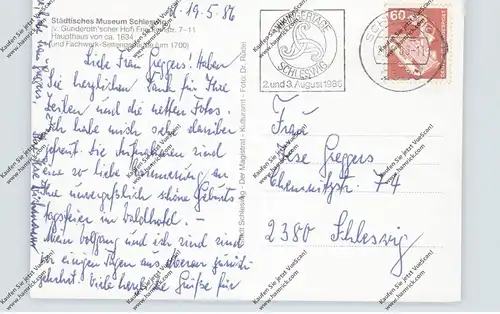 Städtisches Museum Schleswig
v. Gunderoth'scher Hof Friedrichstr. 7–11
Haupthaus von ca. 1634
(und Fachwerk-Seitengebäude um 1700)
19.5.86
Liebe Frau Greggers! Haben
Sie herzlichen Dank für Ihre
Zeilen und die netten Fotos.
Ich habe mich sehr darüber
gefreut. Die Aufnahmen sind
eine so liebe Erinnerung an
Ihre unvergeßlich schöne Geburts
tagsfeier im Waldhotel. –
Mein Wolfgang und ich sind
vor einigen Tagen aus zurück-
gekehrt. Viele herzliche Grüße für
Stadt Schleswig - Der Magistrat - Kulturamt - Foto: Dr. Rüdel
WIKINGERTAGE
SCHLESWIG
2. und 3. August 1986
60
Frau
Ilse Greggers
Chemnitzstr. 74
2380 Schleswig
Kaufen Sie jetzt VueScan!
www.hamrick.com